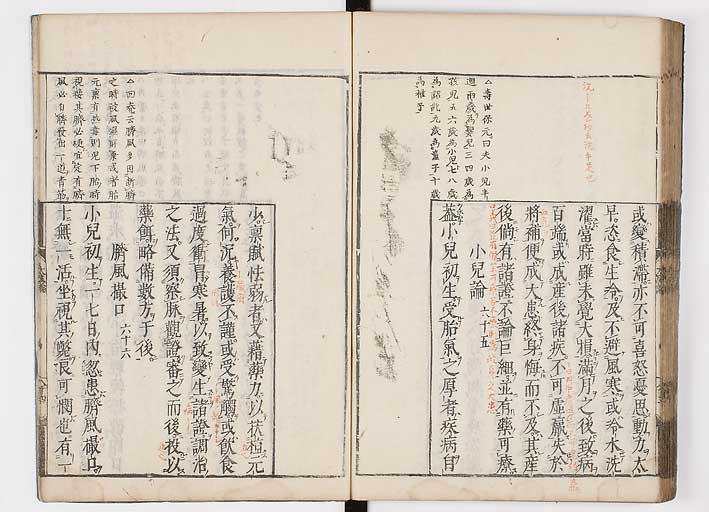 △壽世保元曰夫小兒半
週兩歲爲嬰兒三四歲爲
孩兒五六歲爲小兒七八歲
爲齠齔九歲爲童子十歲
爲稚子
或憂積滯亦不可喜怒憂思動力太
早恣食生冷及不避風寒或冷水洗
濯當時雖未覺大損滿月之後致病
百端或成產後諸疾不可虛羸失於
將補便成大患終身悔而不及其產
後倘有諸證不論巨細並有藥可療
小兒論 六十五
蓋小兒初生受胎氣之厚者疾病自
少稟賦怯弱者又藉藥力以扶植元
氣何况養護不謹或受驚觸或飮食
過度衝冒寒暑以致變生諸證調治
之法又須察脉觀證審之而後投以
藥餌略備數方于後
臍風撮口 六十六
小兒初生一七日內忽患臍風撮口
十無一活坐視其斃良可憫也有一
△回春云臍風多因斷臍
之時被風濕所乘或者胎
元稟有熱毒則兒下胎時
視其臍必硬直定有臍
風必自臍發出一道靑筋